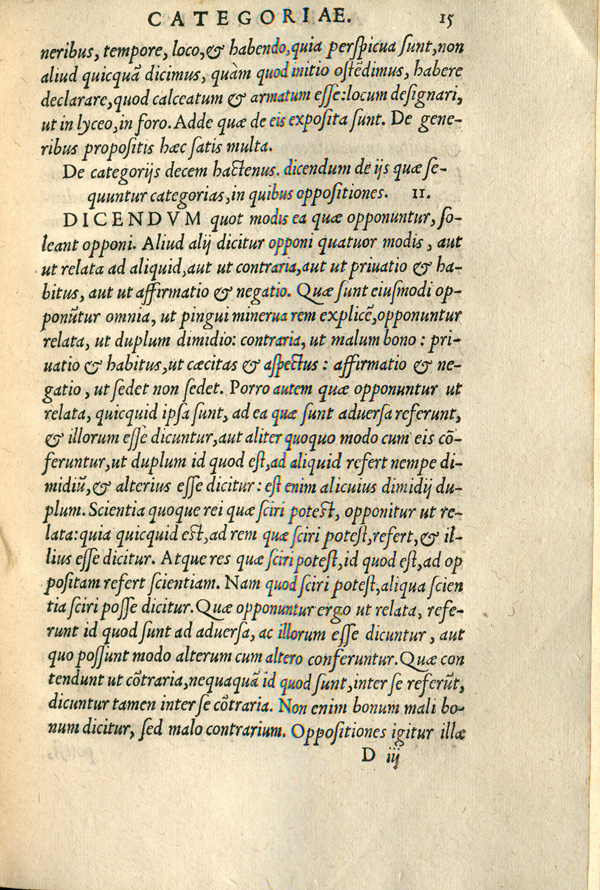 CATEGORIAE. 15
neribus, tempore, loco, & habendo, quia perſpicua ſunt, non
aliud quicquā dicimus, quàm quod initio oſtēdimus, habere
declarare, quod calceatum & armatum eſſe: locum deſignari,
ut in lyceo, in foro. Adde quæ de eis expoſita ſunt. De gene-
ribus propoſitis hæc ſatis multa.
De categorijs decem hactenus. dicendum de ijs quæ ſe-
quuntur categorias, in quibus oppoſitiones. 11.
DICENDVM quot modis ea quæ opponuntur, ſo-
leant opponi. Aliud alij dicitur opponi quatuor modis, aut
ut relata ad aliquid, aut ut contraria, aut ut priuatio & ha-
bitus, aut ut affirmatio & negatio. Quæ ſunt eiuſmodi op-
ponūtur omnia, ut pingui minerua rem explicē, opponuntur
relata, ut duplum dimidio: contraria, ut malum bono: pri-
uatio & habitus, ut cæcitas & aſpectus: affirmatio & ne-
gatio, ut ſedet non ſedet. Porro autem quæ opponuntur ut
relata, quicquid ipſa ſunt, ad ea quæ ſunt aduerſa referunt,
& illorum eſſe dicuntur, aut aliter quoquo modo cum eis cō-
feruntur, ut duplum id quod eſt, ad aliquid refert nempe di-
midiū, & alterius eſſe dicitur: eſt enim alicuius dimidij du-
plum. Scientia quoque rei quæ ſciri poteſt, opponitur ut re-
lata: quia quicquid eſt, ad rem quæ ſciri poteſt, refert, & il-
lius eſſe dicitur. Atque res quæ ſciri poteſt, id quod eſt, ad op
poſitam refert ſcientiam. Nam quod ſciri poteſt, aliqua ſcien
tia ſciri poſſe dicitur. Quæ opponuntur ergo ut relata, refe-
runt id quod ſunt ad aduerſa, ac illorum eſſe dicuntur, aut
quo poſſunt modo alterum cum altero conferuntur. Quæ con
tendunt ut cōtraria, nequaquā id quod ſunt, inter ſe referūt,
dicuntur tamen inter ſe cōtraria. Non enim bonum mali bo-
num dicitur, ſed malo contrarium. Oppoſitiones igitur illæ
D iij